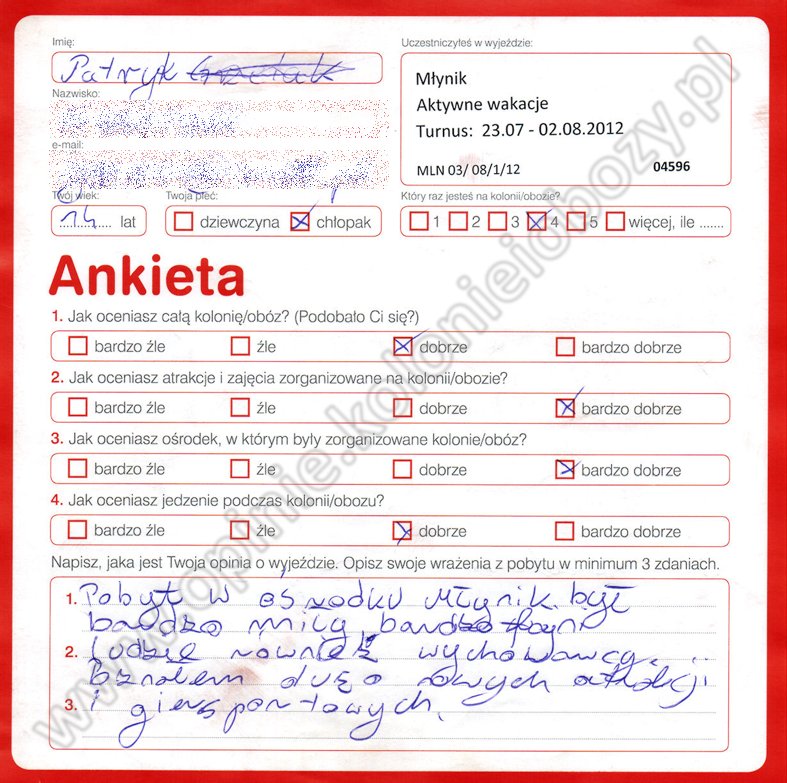 Imię:
Patryk
Nazwisko:
e-mail:
Twój wiek:
14 lat
Twoja płeć:
dziewczyna chłopak
Uczestniczyłeś w wyjeździe:
Młynik
Aktywne wakacje
Turnus: 23.07 - 02.08.2012
MLN 03/ 08/1/12 04596
Który raz jesteś na kolonii/obozie?
1 2 3 4 5 więcej, ile .......
Ankieta
1. Jak oceniasz całą kolonię/obóz? (Podobało Ci się?)
bardzo źle źle dobrze bardzo dobrze
2. Jak oceniasz atrakcje i zajęcia zorganizowane na kolonii/obozie?
bardzo źle źle dobrze bardzo dobrze
3. Jak oceniasz ośrodek, w którym były zorganizowane kolonie/obóz?
bardzo źle źle dobrze bardzo dobrze
4. Jak oceniasz jedzenie podczas kolonii/obozu?
bardzo źle źle dobrze bardzo dobrze
Napisz, jaka jest Twoja opinia o wyjeździe. Opisz swoje wrażenia z pobytu w minimum 3 zdaniach.
1. Pobyt w ośrodku Młynik był
bardzo miły, bardzo fajni
2. ludzie również wychowawcy.
dużo nowych atrakcji
3. i gier sportowych.
www.opinie.kolonieiobozy.pl